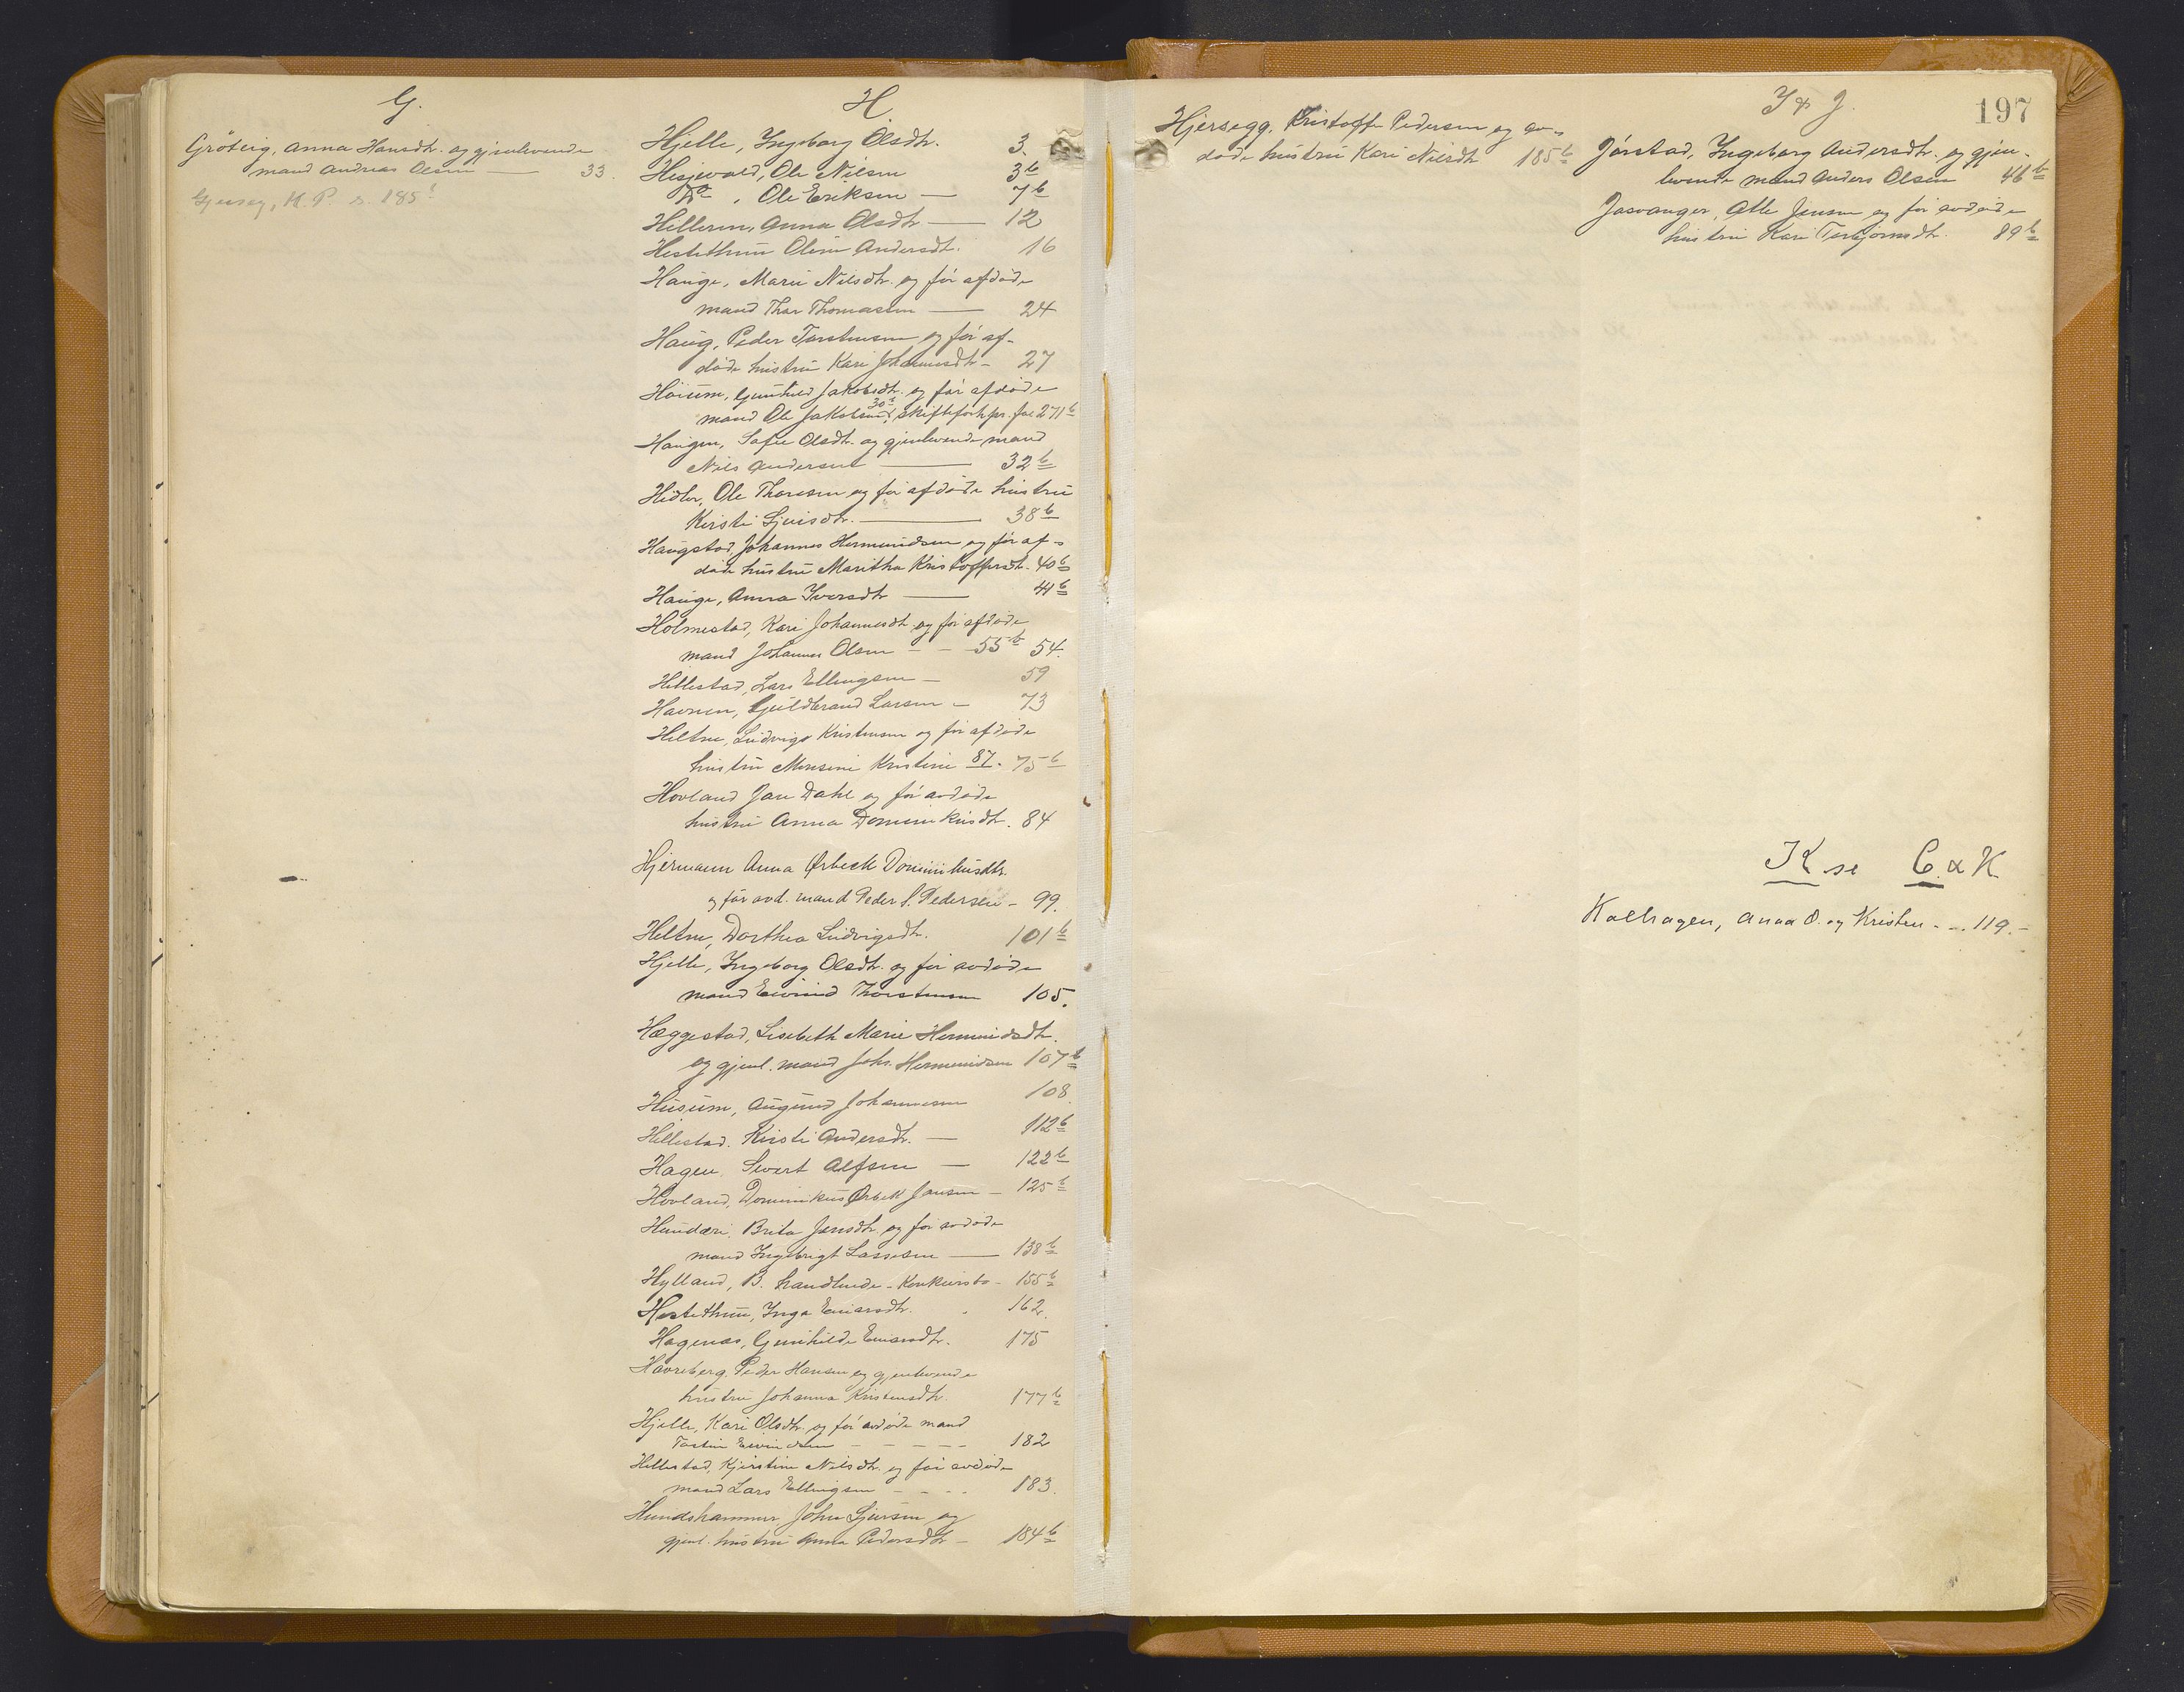 G.
Gröteig, Anna Hansdtr. og gjenlevende
mand Andreas Olsen — 33.
Gjerseg, K. P. s. 185b
H
Hjelle, Ingeborg Olsdtr. 3.
Hesjevold, Ole Nilsen 3b
Do , Ole Eriksen — 7b
Hilleren, Anna Olsdtr — 12
Hestethun Oline Andersdt. 16
Hauge, Mari Nilsdtr. og før afdøde
mand Thor Thomassen — 24
Haug, Peder Torstensen og før af-
døde hustru Kari Johannesdtr – 27
Høium, Gunhild Jakobsdtr. og før afdøde
mand Ole Jakobsen, 30b skifteforhpr. fol 271b
Haugen, Sofie Olsdtr. og gjenlevende mand
Nils Andersen — 32b
Hidler, Ole Thoresen og før afdøde hustru
Kirsti Sjursdtr. — 38b
Haugstad, Johannes Hermundsen og før af-
døde hustru Maritha Kristoffersdt. 40b
Hauge, Anna Iversdtr — 41b
Holmestad, Kari Johannesdt. og før afdøde
mand Johannes Olsen – – 55b 54.
Hillestad, Lars Ellingsen – 59
Havnen, Guldbrand Larsen – 73
Heltne, Ludvigs Kristensen og før afdøde
hustru Monsine Kristine 87. 75b
Hovland Jan Dahl og før avdøde
hustru Anna Dominikusdtr. 84
Hjermann Anna Ørbeck Dominikusdtr.
og før avd. mand Peder S. Pedersen – 99.
Heltne, Dorthea Ludvigsdtr. 101b
Hjelle, Ingeborg Olsdtr. og før avdøde
mand Eivind Thorstensen 105.
Hæggestad, Lisebeth Marie Hermundsdtr.
og gjenl. mand Johs. Hermundsen 107b
Husum, Augund Johannesen 108.
Hillestad. Kirsti Andersdtr. — 112b
Hagen. Sivert Alfsen — 122b
Hovland, Dominikus Ørbek Jansen – 125b
Hundere, Brita Jensdtr og før avdøde
mand Ingebrigt Lassesen — 138b
Hylland, B. handlende – Konkursbo – 155b
Hestethun, Inga Einarsdtr. 162.
Hagenæs, Gunhilde Einarsdtr. 175
Havreberg, Peder Hansen og gjenlevende
hustru Johanna Kristensdtr. 177b
Hjelle, Kari Olsdtr. og før avdøde mand
Tosten Eivindsen – – – – 182
Hillestad, Kjerstine Nilsdtr. og før avdøde
mand Lars Ellingsen – – – – 183.
Hundshammer, John Sjursen og
gjenl. hustru Anna Pedersdtr – 184b
Hjersegg. Kristoffer Pedersen og av-
døde hustru Kari Nilsdtr 185b
I & J.
197
Jørstad, Ingeborg Andersdtr. og gjen-
levende mand Anders Olsen 46b
Josvanger, Atle Jensen og før avdøde
hustru Kari Torbjørnsdtr. 89b
K se C & K
Kalhagen, Anna O. og Kristen - .. 119.–